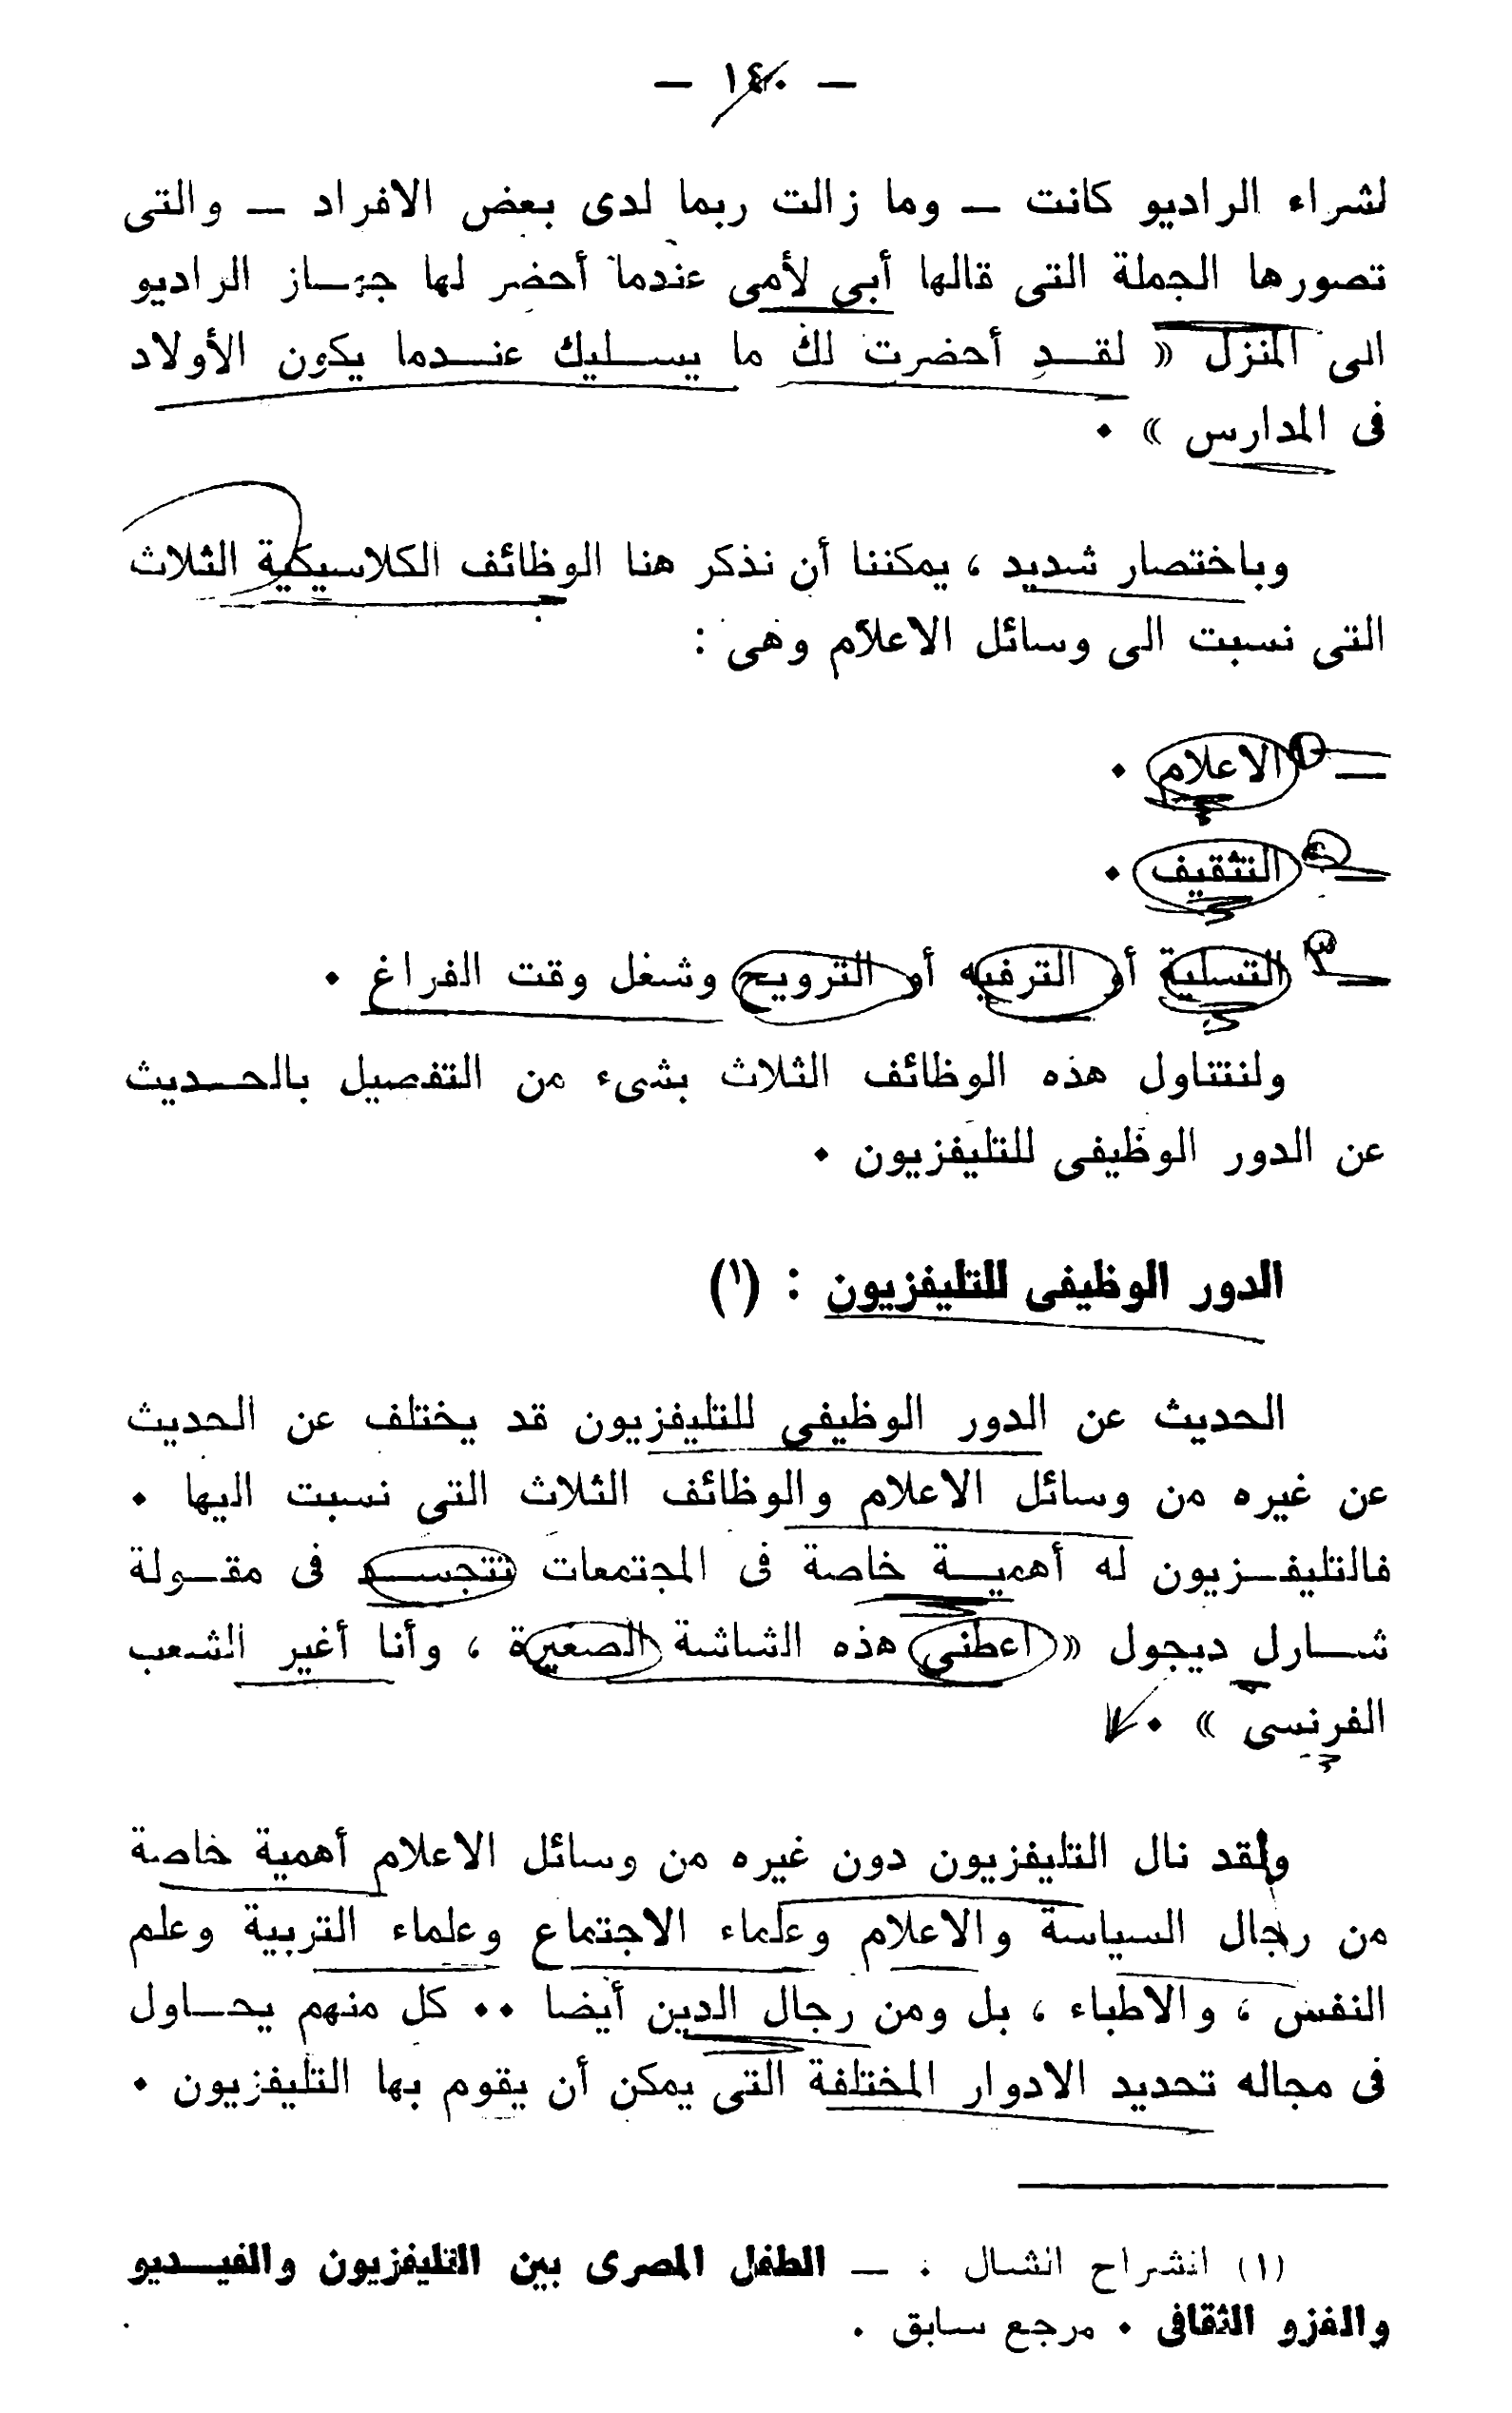 — ١٤٠ —
لشراء الراديو كانت — وما زالت ربما لدى بعض الافراد — والتى
تصورها الجملة التى قالها أبى لأمى عندما أحضر لها جهـــاز الراديو
الى المنزل « لقــد أحضرت لك ما يســليك عنــدما يكون الأولاد
فى المدارس » ٠
وباختصار شديد ، يمكننا أن نذكر هنا الوظائف الكلاسيكية الثلاث
التى نسبت الى وسائل الاعلام وهى :
١ — الاعلام ٠
٢ — التثقيف ٠
٣ — التسلية أو الترفيه أو الترويح وشغل وقت الفراغ ٠
ولنتناول هذه الوظائف الثلاث بشىء من التفصيل بالحــديث
عن الدور الوظيفى للتليفزيون ٠
الدور الوظيفى للتليفزيون : (١)
الحديث عن الدور الوظيفى للتليفزيون قد يختلف عن الحديث
عن غيره من وسائل الاعلام والوظائف الثلاث التى نسبت اليها ٠
فالتليفــزيون له أهميــة خاصة فى المجتمعات تتجســد فى مقــولة
شــارل ديجول « اعطنى هذه الشاشة الصغيرة ، وأنا أغير الشعب
الفرنسى » ٠
ولقد نال التليفزيون دون غيره من وسائل الاعلام أهمية خاصة
من رجال السياسة والاعلام وعلماء الاجتماع وعلماء التربية وعلم
النفس ، والاطباء ، بل ومن رجال الدين أيضا ٠٠ كل منهم يحــاول
فى مجاله تحديد الادوار المختلفة التى يمكن أن يقوم بها التليفزيون ٠
(١) انشراح الشال ٠ — الطفل المصرى بين التليفزيون والفيــديو
والغزو الثقافى ٠ مرجع سابق ٠